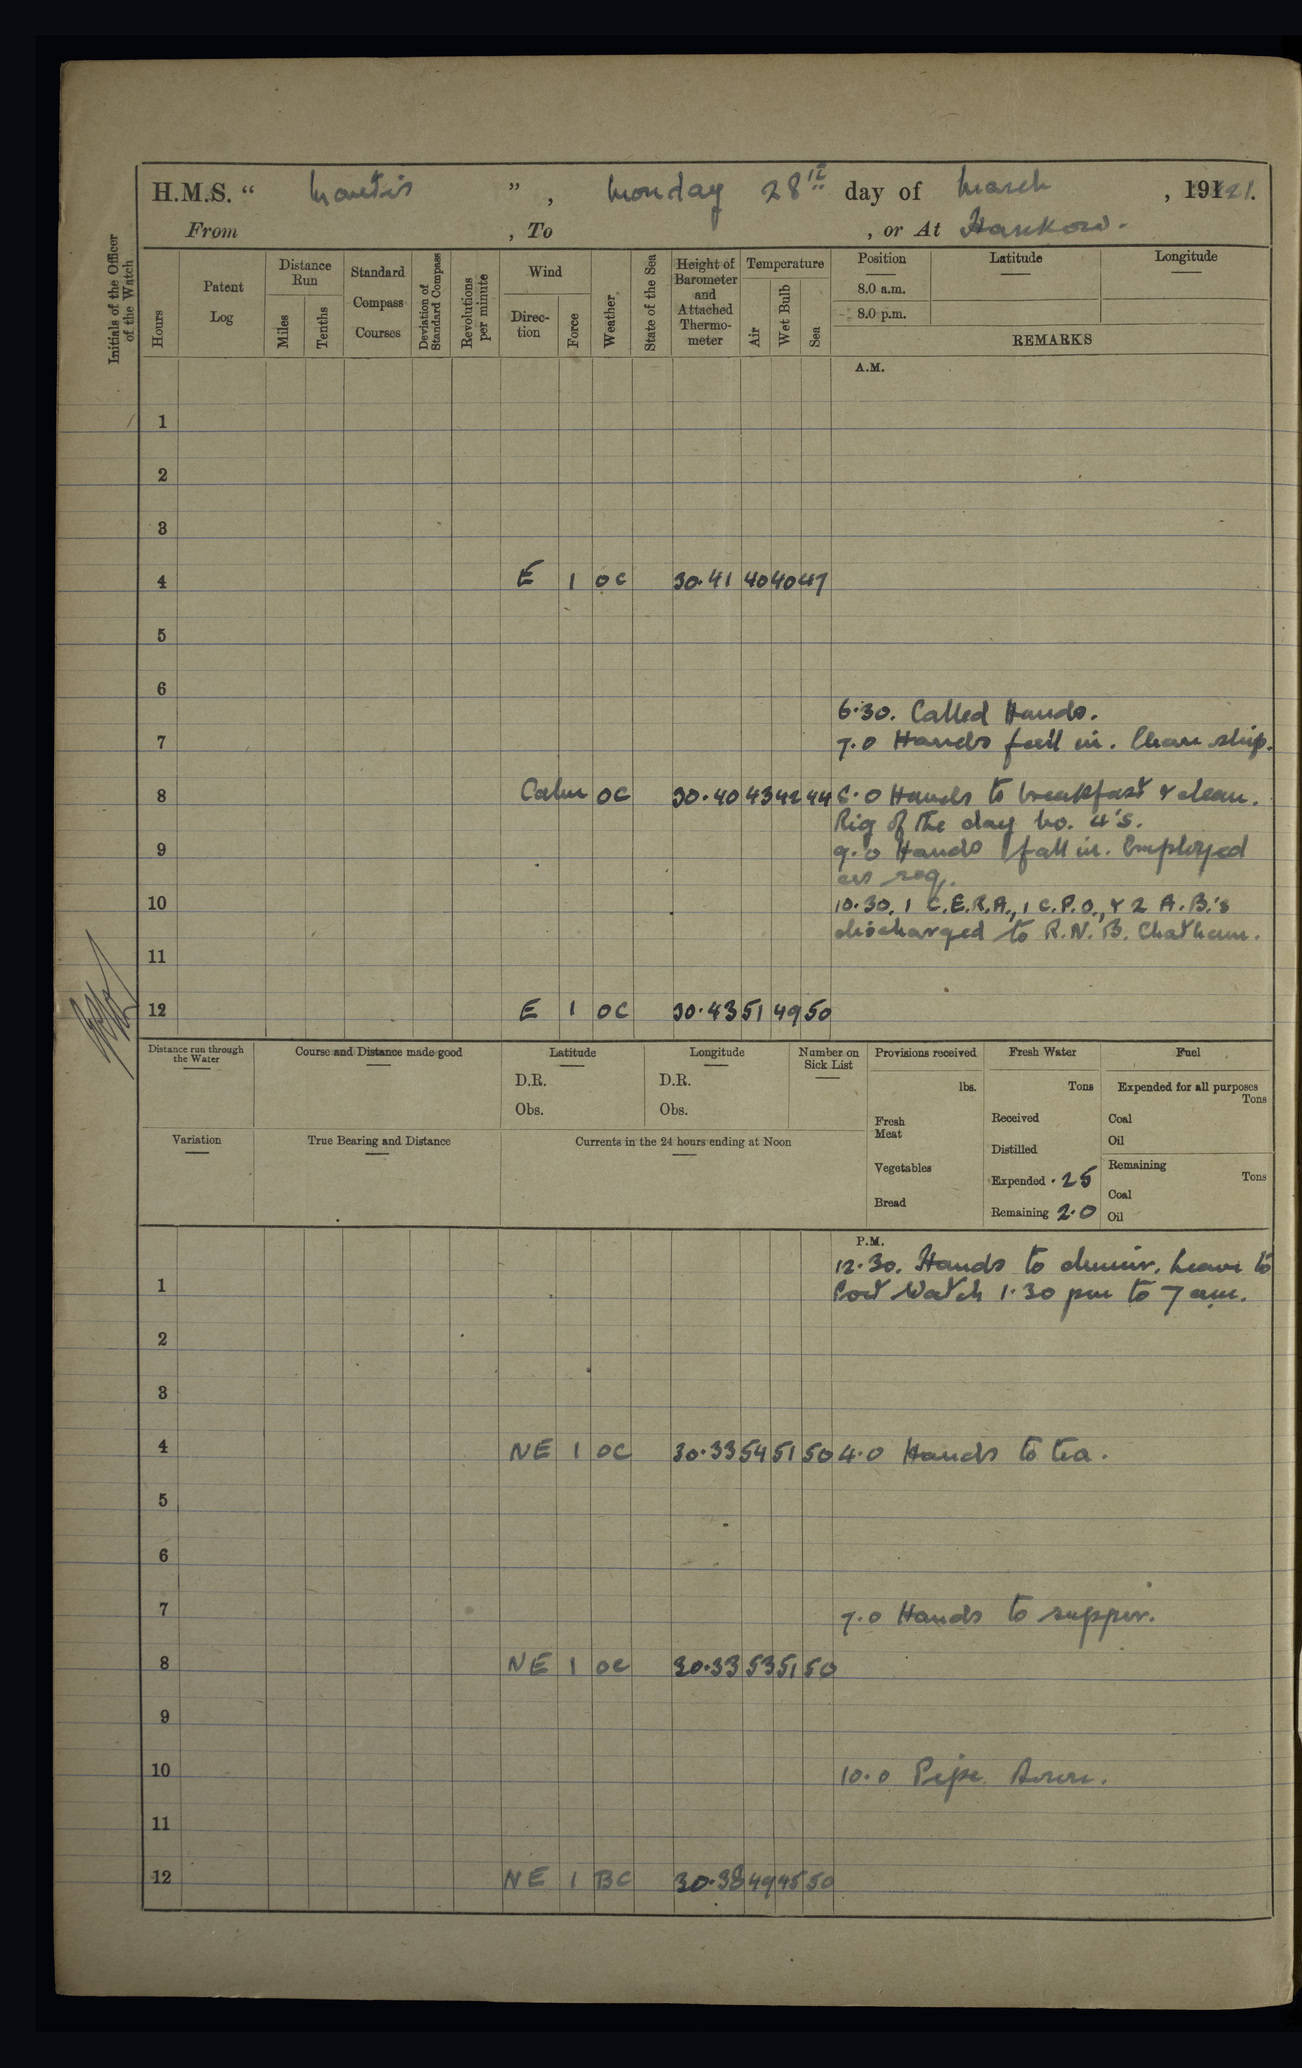 H.M.S. “ Mantis ”, Monday 28th day of March, 1921.
From , To , or At Hankow.
Initials of the Officer of the Watch
Hours
Patent Log
Distance Run
Miles
Tenths
Standard Compass Courses
Deviation of Standard Compass
Revolutions per minute
Wind
Direction
Force
Weather
State of the Sea
Height of Barometer and Attached Thermometer
Temperature
Air
Wet Bulb
Sea
Position
Latitude
Longitude
8.0 a.m.
8.0 p.m.
REMARKS
A.M.
1
2
3
4 E 1 OC 30.41 40 40 47
5
6
6.30. Called Hands.
7 7.0 Hands fall in. Clean ship.
8 Calm OC 30.40 43 42 44 8.0 Hands to breakfast & clean.
Rig of the day No. 4's.
9 9.0 Hands fall in. Employed
as req.
10 10.30. 1 C.E.R.A., 1 C.P.O., & 2 A.B.'s
discharged to R.N.B. Chatham.
11
12 E 1 OC 30.43 51 49 50
Distance run through the Water
Course and Distance made good
Latitude
D.R.
Obs.
Longitude
D.R.
Obs.
Number on Sick List
Provisions received
lbs.
Fresh Meat
Vegetables
Bread
Fresh Water
Tons
Received
Distilled
Expended .25
Remaining 2.0
Fuel
Expended for all purposes
Tons
Coal
Oil
Remaining
Tons
Coal
Oil
Variation
True Bearing and Distance
Currents in the 24 hours ending at Noon
P.M.
12.30. Hands to dinner. Leave to
1 Port Watch 1.30 pm to 7 am.
2
3
4 NE 1 OC 30.33 54 51 50 4.0 Hands to tea.
5
6
7 7.0 Hands to supper.
8 NE 1 OC 30.33 53 51 50
9
10 10.0 Pipe Down.
11
12 NE 1 BC 30.38 49 45 50